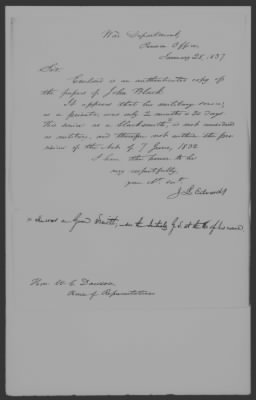 War Department,
Pension Office,
January 25, 1837
Sir,
Enclosed is an authenticated copy of
the papers of John Black.
It appears that his military service,
as a private, was only 2 months & 20 days.
His service as a blacksmith* is not considered
as military, and therefore not within the pro
visions of the Act of 7 June, 1832
I have the honor to be
very respectfully,
your Obt. Servt.
J. L. Edwards
* He was a Gun Smith, at the of his name
Hon. W. C. Dawson,
House of Representatives